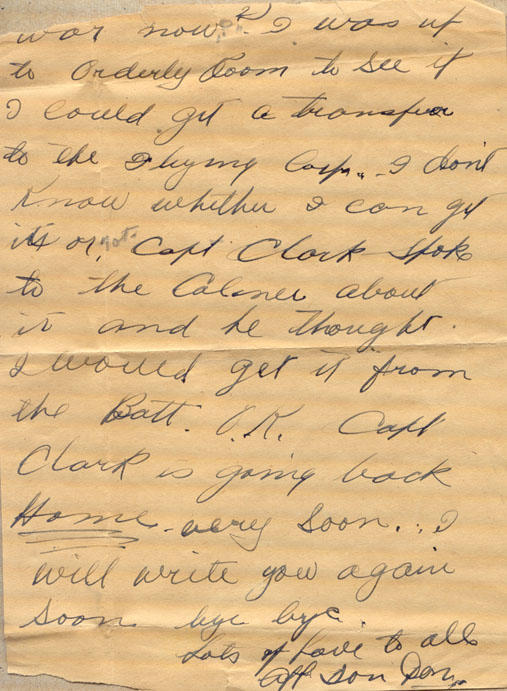 war now? I was up
to Orderly Room to see if
I could get a transfer
to the Flying Corp. I don't
Know whether I can get
it or not. Capt Clark spoke
to the Colonel about
it and he thought.
I would get it from
the Batt. O.K. Capt
Clark is going back
Home very soon. I
will write you again
soon bye bye.
Lots of Love to all
Aff Son Don.